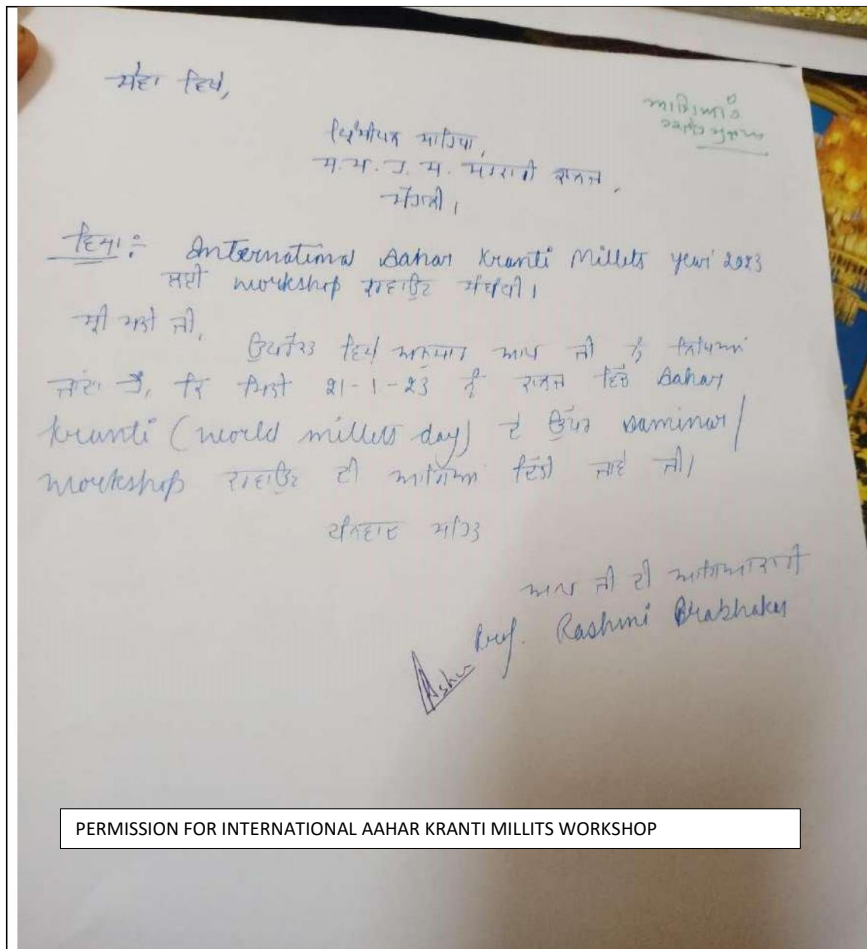 ਸੇਵਾ ਵਿਖੇ,
ਪ੍ਰਿੰਸੀਪਲ ਸਾਹਿਬਾ,
ਸਰਕਾਰੀ ਕਾਲਜ,
ਵਿਸ਼ਾ: International Aahar Kranti Millets year 2023
ਲਈ workshop ਕਰਵਾਉਣ ਸੰਬੰਧੀ।
ਸ੍ਰੀ ਮਤੀ ਜੀ,
ਉਪਰੋਕਤ ਵਿਸ਼ੇ ਅਨੁਸਾਰ ਆਪ ਜੀ ਨੂੰ ਲਿਖਿਆ
ਜਾਂਦਾ ਹੈ, ਕਿ ਮਿਤੀ 21-1-23 ਨੂੰ ਕਾਲਜ ਵਿੱਚ Aahar
Kranti (world millets day) ਦੇ ਉੱਪਰ saminar/
workshop ਕਰਵਾਉਣ ਦੀ ਆਗਿਆ ਦਿੱਤੀ ਜਾਵੇ ਜੀ।
ਧੰਨਵਾਦ ਸਹਿਤ
ਆਪ ਜੀ ਦੀ ਆਗਿਆਕਾਰੀ
Prof. Rashmi Prabhakar
PERMISSION FOR INTERNATIONAL AAHAR KRANTI MILLITS WORKSHOP